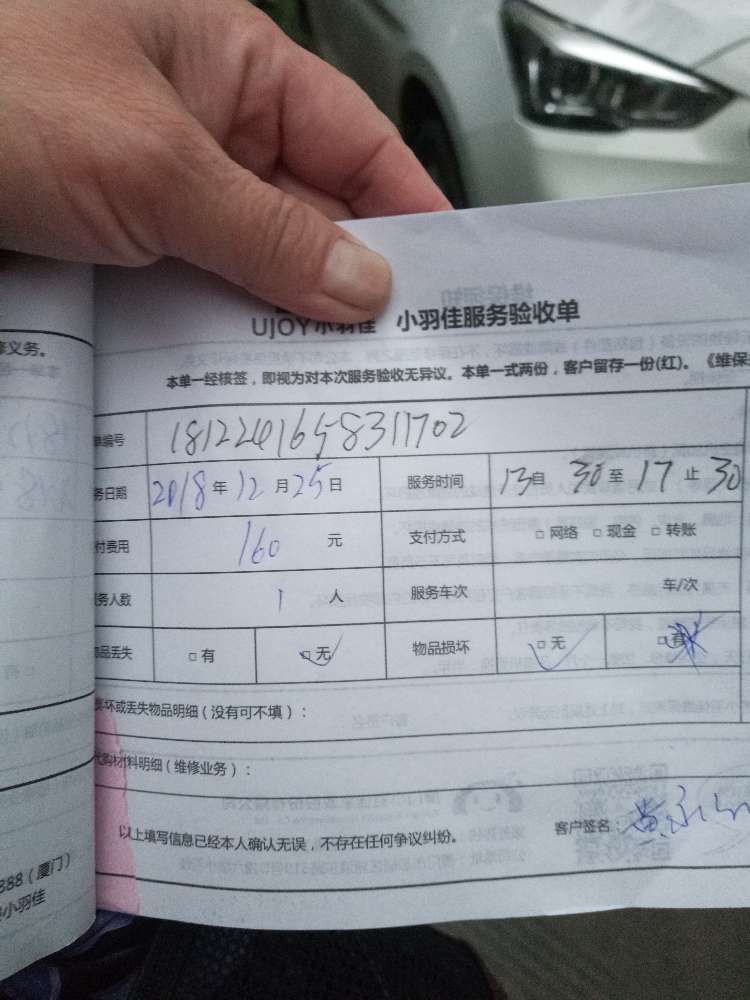 UJOY小羽佳 小羽佳服务验收单
本单一经核签，即视为对本次服务验收无异议。本单一式两份，客户留存一份(红)。《维保
单编号 1812241658311702
务日期 2018年12月25日 服务时间 13自30至17止30
付费用 160元 支付方式 □网络 □现金 □转账
务人数 1人 服务车次 车/次
品丢失 □有 □无 物品损坏 □无 □有
坏或丢失物品明细（没有可不填）：
代购材料明细（维修业务）：
以上填写信息已经本人确认无误，不存在任何争议纠纷。 客户签名： 黄永
义务。
888（厦门）
小羽佳